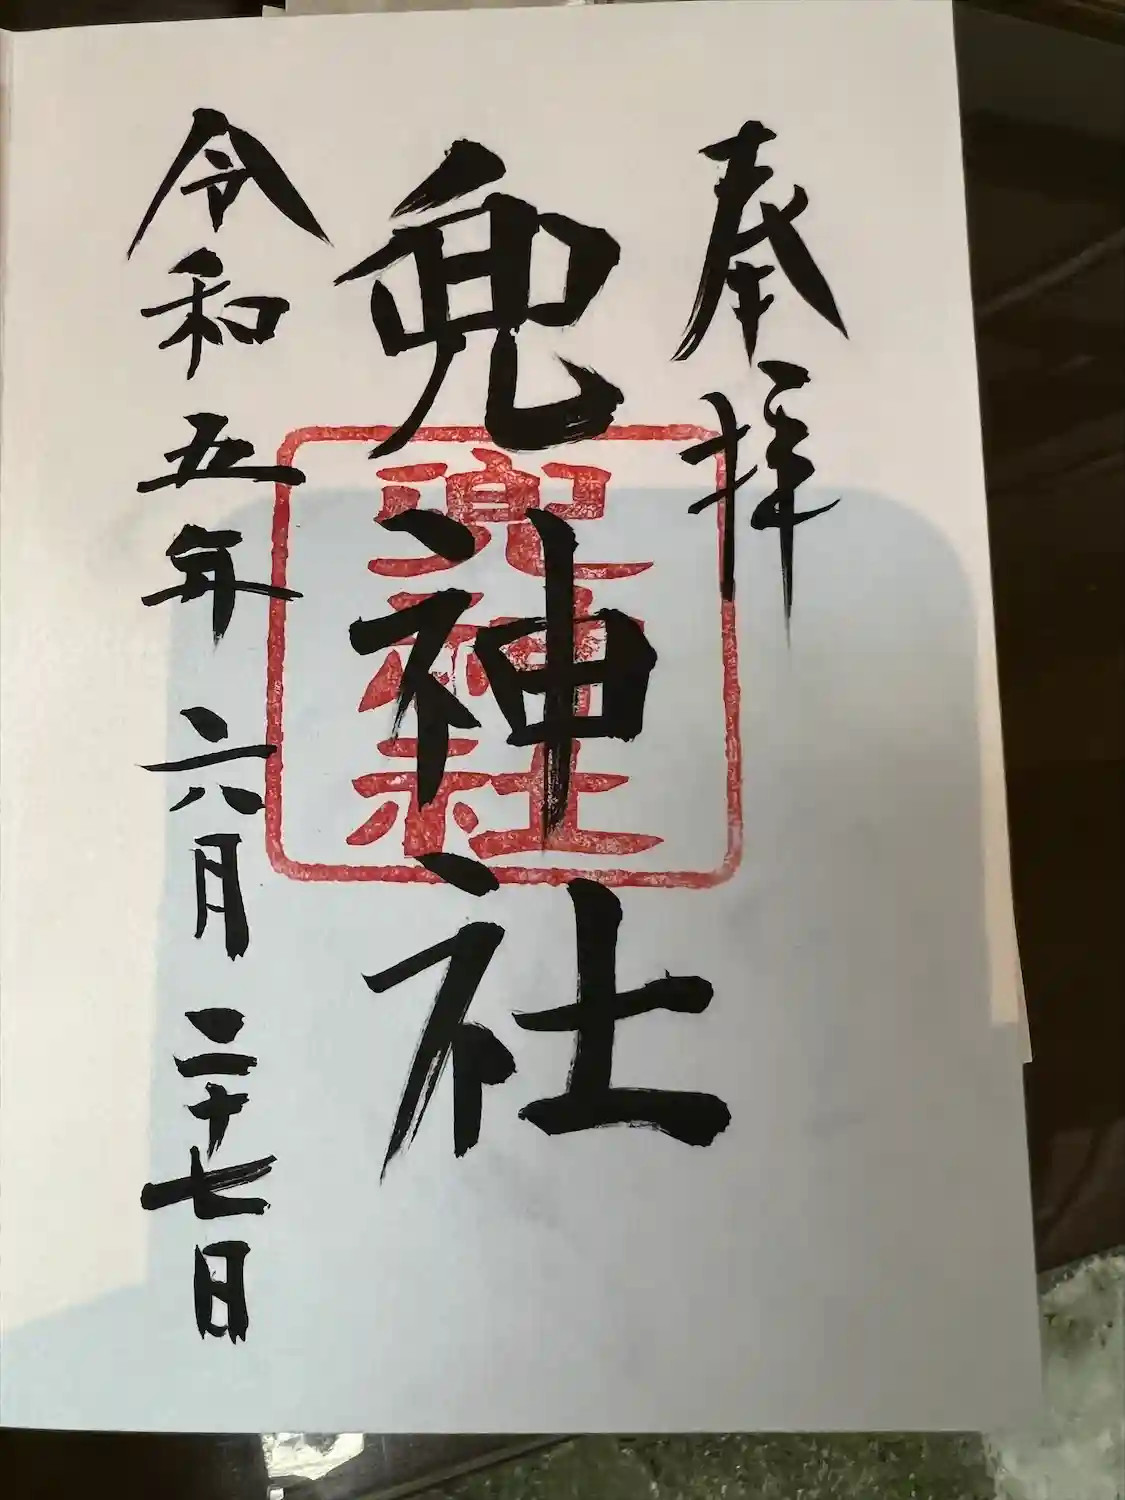 奉拝
兜神社
兜神社
令和五年六月二十七日